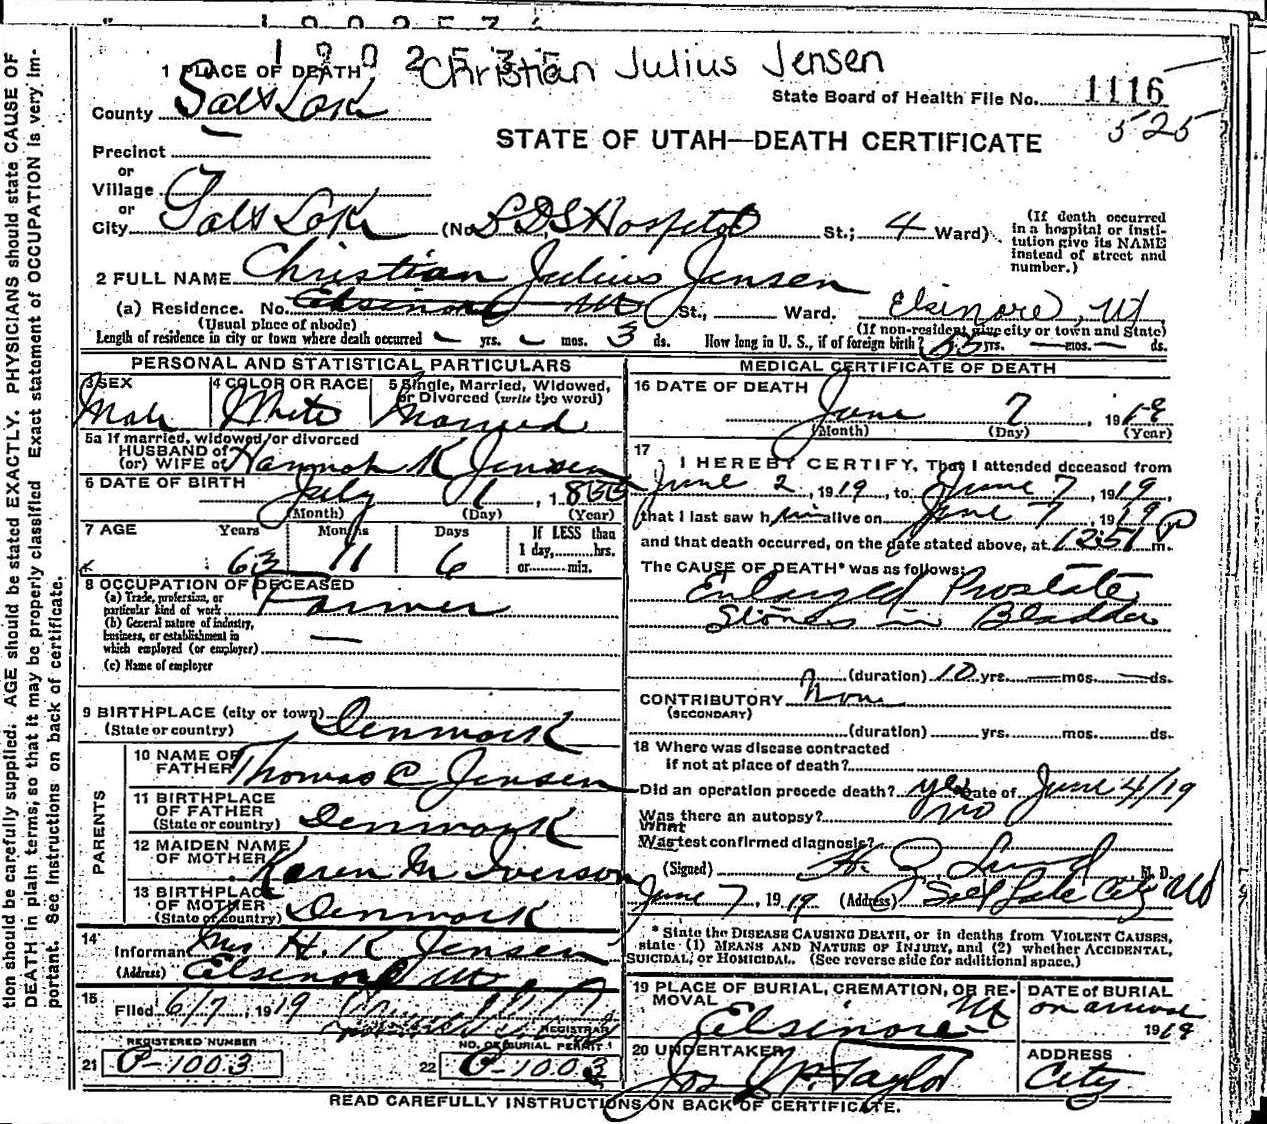 1002574
1002535
Christian Julius Jensen
1 PLACE OF DEATH
State Board of Health File No. 1116
County Salt Lake
525
STATE OF UTAH—DEATH CERTIFICATE
Precinct
or
Village
or
City Salt Lake (No. L D S Hospital St.; 4 Ward)
(If death occurred in a hospital or insti-
tution give its NAME
instead of street and
number.)
2 FULL NAME Christian Julius Jensen
(a) Residence. No. Elsinore Ut St., Ward. Elsinore, Ut
(Usual place of abode) (If non-resident give city or town and State)
Length of residence in city or town where death occurred — yrs. — mos. 3 ds. How long in U. S., if of foreign birth? 55 yrs. — mos. — ds.
PERSONAL AND STATISTICAL PARTICULARS
3 SEX 4 COLOR OR RACE 5 Single, Married, Widowed,
or Divorced (write the word)
Male White Married
5a If married, widowed, or divorced
HUSBAND of
(or) WIFE of Hannah K Jensen
6 DATE OF BIRTH July 1, 1855
(Month) (Day) (Year)
7 AGE Years Months Days If LESS than
1 day, hrs.
or min.
63 11 6
8 OCCUPATION OF DECEASED
(a) Trade, profession, or
particular kind of work Farmer
(b) General nature of industry,
business, or establishment in
which employed (or employer) —
(c) Name of employer
9 BIRTHPLACE (city or town)
(State or country) Denmark
PARENTS
10 NAME OF
FATHER Thomas C Jensen
11 BIRTHPLACE
OF FATHER
(State or country) Denmark
12 MAIDEN NAME
OF MOTHER Karen M Iverson
13 BIRTHPLACE
OF MOTHER
(State or country) Denmark
14 Informant Mrs H. K Jensen
(Address) Elsinore Ut
15 Filed 6/7, 1919
REGISTRAR
REGISTERED NUMBER
21 P-1003
NO. OF BURIAL PERMIT
22 P-1003
MEDICAL CERTIFICATE OF DEATH
16 DATE OF DEATH
June 7 1919
(Month) (Day) (Year)
17 I HEREBY CERTIFY, That I attended deceased from
June 2, 1919, to June 7, 1919,
that I last saw him alive on June 7, 1919
and that death occurred, on the date stated above, at 12:51 P m.
The CAUSE OF DEATH* was as follows:
Enlarged Prostate
Stones in Bladder
(duration) 10 yrs. — mos. — ds.
CONTRIBUTORY None
(SECONDARY)
(duration) yrs. mos. ds.
18 Where was disease contracted
if not at place of death?
Did an operation precede death? yes Date of June 4/19
Was there an autopsy? no
What
Was test confirmed diagnosis?
(Signed) M. D.
June 7, 1919 (Address) Salt Lake City Ut
* State the DISEASE CAUSING DEATH, or in deaths from VIOLENT CAUSES,
state (1) MEANS AND NATURE OF INJURY, and (2) whether ACCIDENTAL,
SUICIDAL, or HOMICIDAL. (See reverse side for additional space.)
19 PLACE OF BURIAL, CREMATION, OR RE-
MOVAL
Elsinore Ut
DATE of BURIAL
on arrival
1919
20 UNDERTAKER
Jos Wm. Taylor
ADDRESS
City
READ CAREFULLY INSTRUCTIONS ON BACK OF CERTIFICATE.
tion should be carefully supplied. AGE should be stated EXACTLY. PHYSICIANS should state CAUSE OF
DEATH in plain terms, so that it may be properly classified. Exact statement of OCCUPATION is very im-
portant. See Instructions on back of certificate.